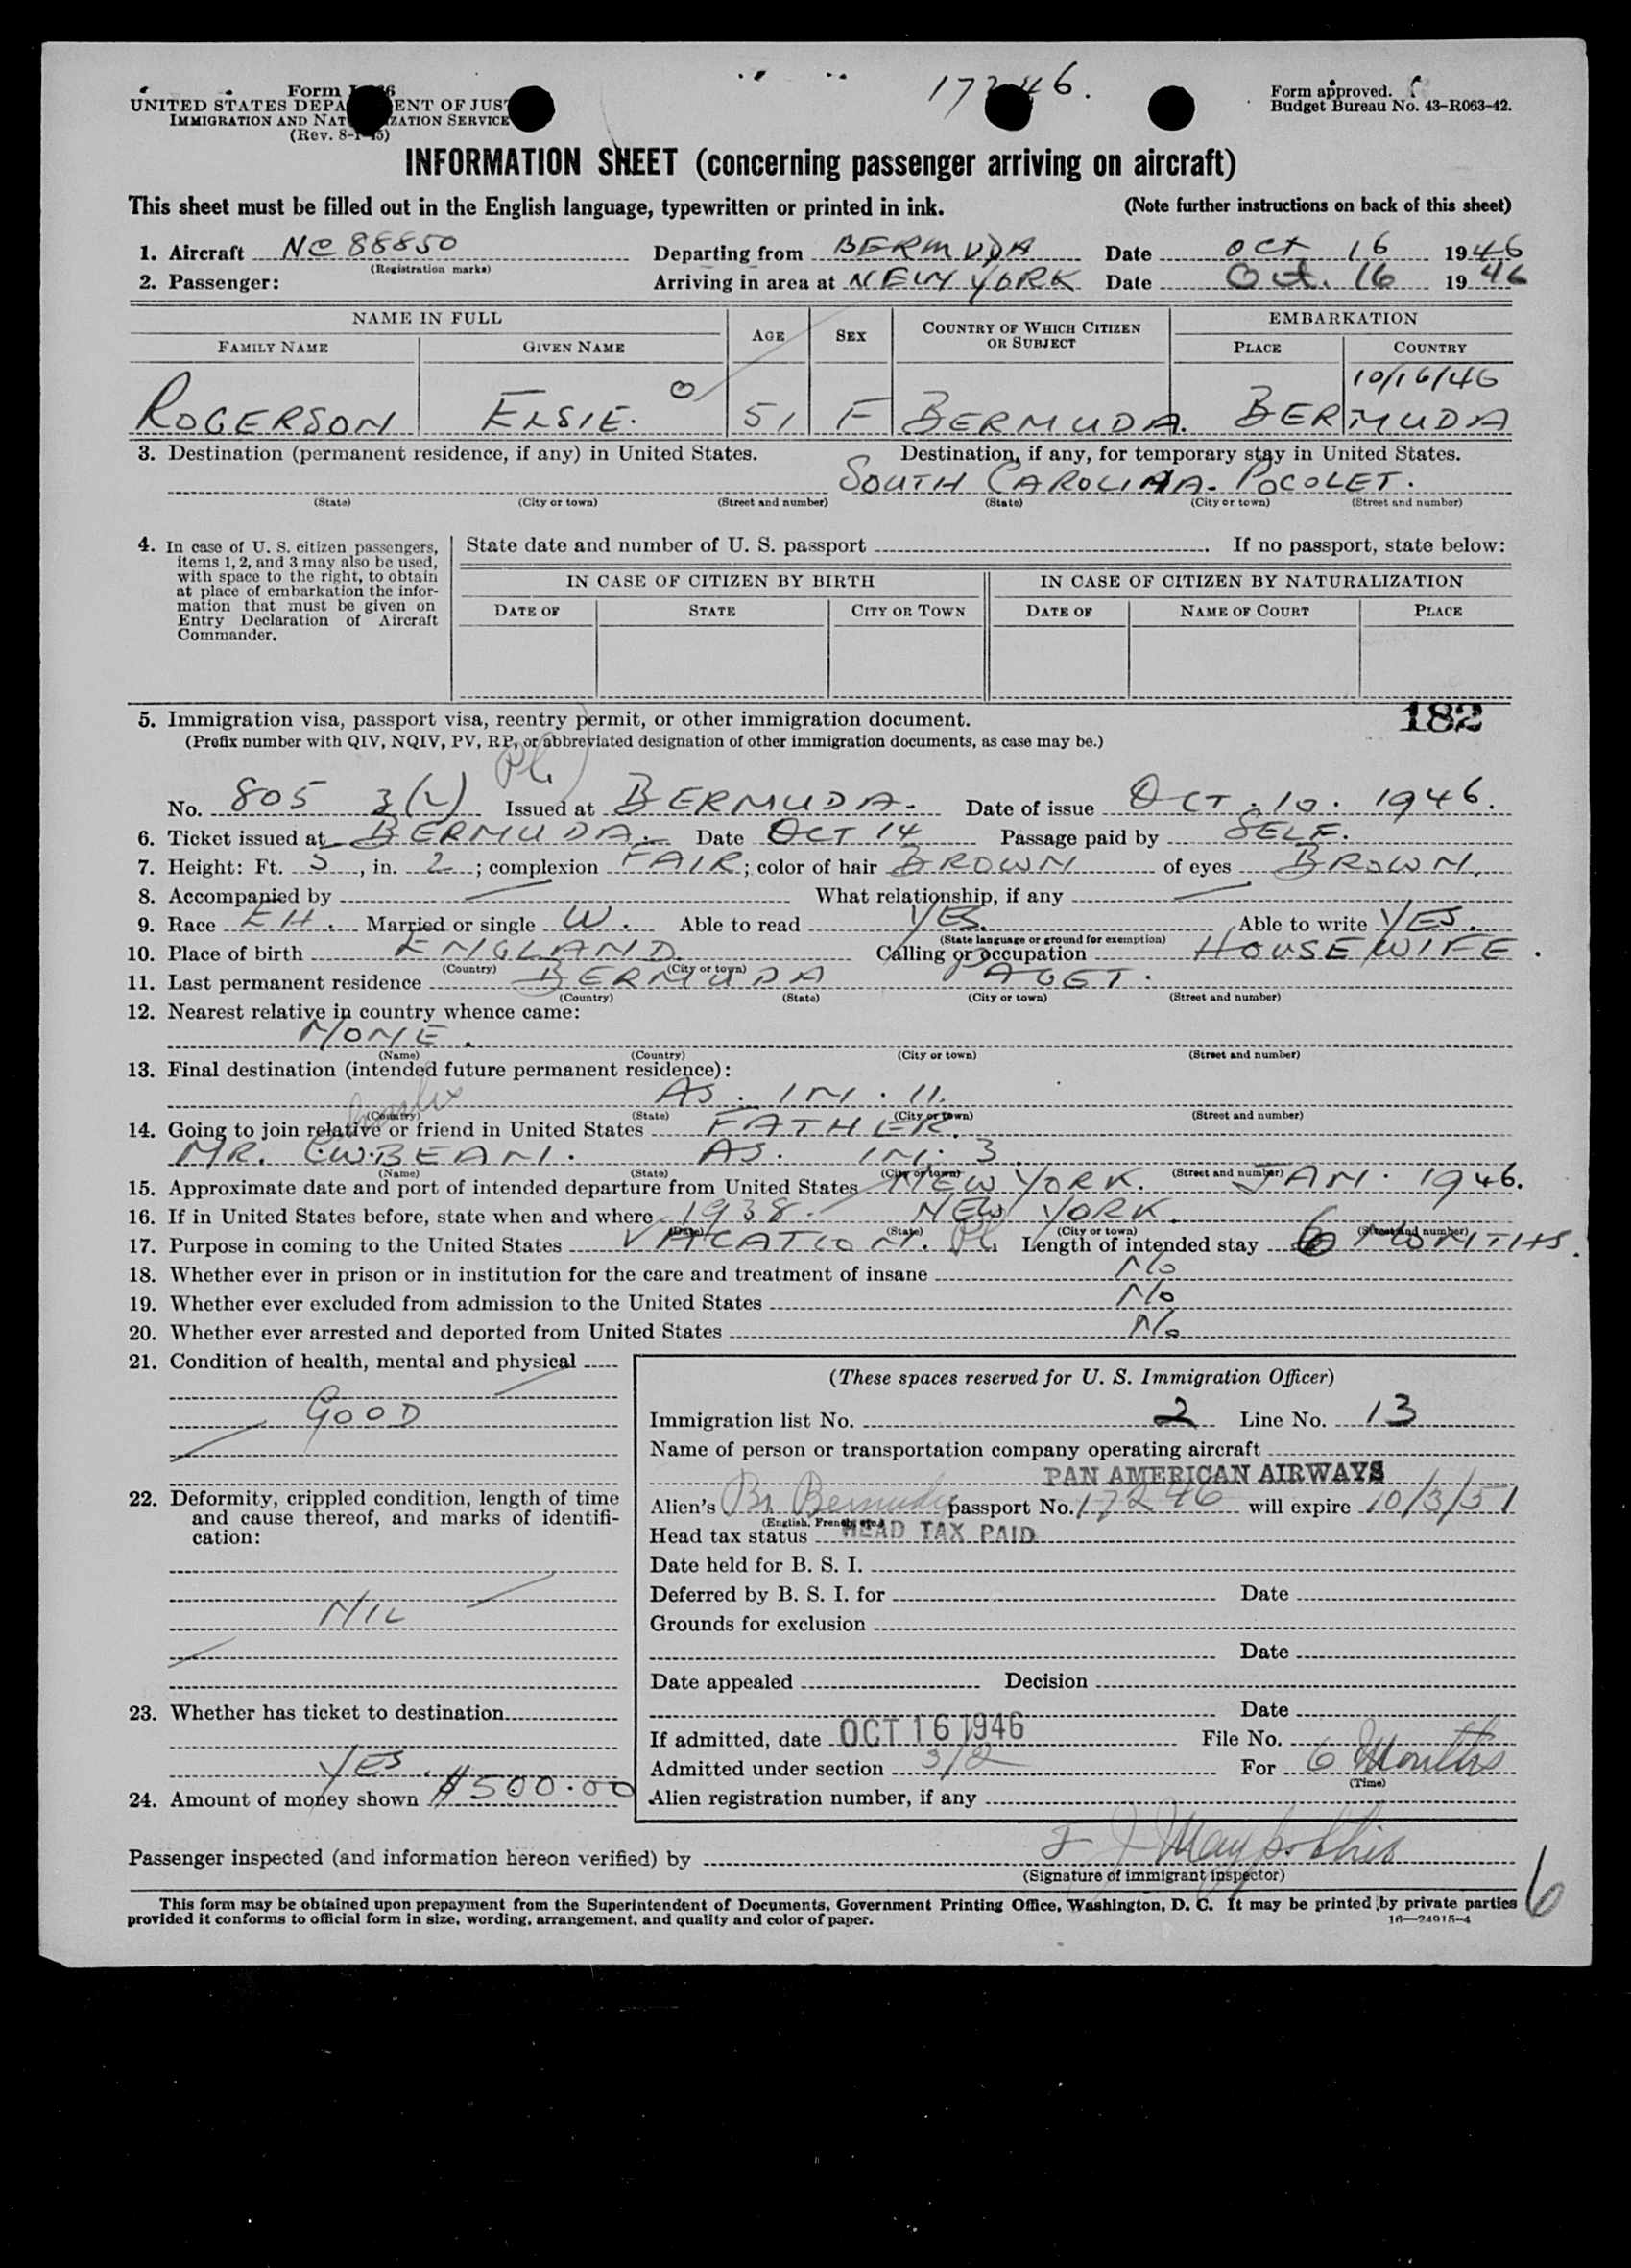 17246.
Form I-466
UNITED STATES DEPARTMENT OF JUSTICE
IMMIGRATION AND NATURALIZATION SERVICE
(Rev. 8-1-45)
Form approved.
Budget Bureau No. 43-R063-42.
INFORMATION SHEET (concerning passenger arriving on aircraft)
This sheet must be filled out in the English language, typewritten or printed in ink. (Note further instructions on back of this sheet)
1. Aircraft NC 88850 Departing from BERMUDA Date OCT 16 1946
(Registration marks)
2. Passenger: Arriving in area at NEW YORK Date Oct. 16 1946
NAME IN FULL AGE SEX COUNTRY OF WHICH CITIZEN OR SUBJECT EMBARKATION
FAMILY NAME GIVEN NAME PLACE COUNTRY
10/16/46
ROGERSON ELSIE. 51 F BERMUDA. BERMUDA
3. Destination (permanent residence, if any) in United States. Destination, if any, for temporary stay in United States.
SOUTH CAROLINA. POCOLET.
(State) (City or town) (Street and number) (State) (City or town) (Street and number)
4. In case of U. S. citizen passengers, items 1, 2, and 3 may also be used, with space to the right, to obtain at place of embarkation the information that must be given on Entry Declaration of Aircraft Commander.
State date and number of U. S. passport . If no passport, state below:
IN CASE OF CITIZEN BY BIRTH IN CASE OF CITIZEN BY NATURALIZATION
DATE OF STATE CITY OR TOWN DATE OF NAME OF COURT PLACE
182
5. Immigration visa, passport visa, reentry permit, or other immigration document.
(Prefix number with QIV, NQIV, PV, RP, or abbreviated designation of other immigration documents, as case may be.)
No. 805 3(2) Issued at BERMUDA. Date of issue OCT. 10. 1946.
6. Ticket issued at BERMUDA. Date OCT 14 Passage paid by SELF.
7. Height: Ft. 5, in. 2; complexion FAIR; color of hair BROWN of eyes BROWN.
8. Accompanied by What relationship, if any
9. Race EH. Married or single W. Able to read YES. Able to write YES.
(State language or ground for exemption)
10. Place of birth ENGLAND. Calling or occupation HOUSEWIFE.
(Country) (City or town)
11. Last permanent residence BERMUDA PAGET.
(Country) (State) (City or town) (Street and number)
12. Nearest relative in country whence came:
NONE.
(Name) (Country) (City or town) (Street and number)
13. Final destination (intended future permanent residence):
AS. IN. 11.
(Country) (State) (City or town) (Street and number)
14. Going to join relative or friend in United States FATHER.
MR. C.W.BEAN. AS. IN. 3
(Name) (State) (City or town) (Street and number)
15. Approximate date and port of intended departure from United States NEW YORK. JAN. 1946.
16. If in United States before, state when and where 1938. NEW YORK.
(Date) (State) (City or town) (Street and number)
17. Purpose in coming to the United States VACATION. Length of intended stay 6 MONTHS.
18. Whether ever in prison or in institution for the care and treatment of insane No
19. Whether ever excluded from admission to the United States No
20. Whether ever arrested and deported from United States No
21. Condition of health, mental and physical
GOOD
22. Deformity, crippled condition, length of time and cause thereof, and marks of identification:
NIL
23. Whether has ticket to destination
YES.
24. Amount of money shown $500.00
(These spaces reserved for U. S. Immigration Officer)
Immigration list No. 2 Line No. 13
Name of person or transportation company operating aircraft
PAN AMERICAN AIRWAYS
Alien's Br Bermuda passport No. 17246 will expire 10/3/51
(English, French, etc.)
Head tax status HEAD TAX PAID
Date held for B. S. I.
Deferred by B. S. I. for Date
Grounds for exclusion
Date
Date appealed Decision
Date
If admitted, date OCT 16 1946 File No.
Admitted under section 3/2 For 6 Months
(Time)
Alien registration number, if any
Passenger inspected (and information hereon verified) by
(Signature of immigrant inspector)
6
This form may be obtained upon prepayment from the Superintendent of Documents, Government Printing Office, Washington, D. C. It may be printed by private parties
provided it conforms to official form in size, wording, arrangement, and quality and color of paper.
16—24915-4